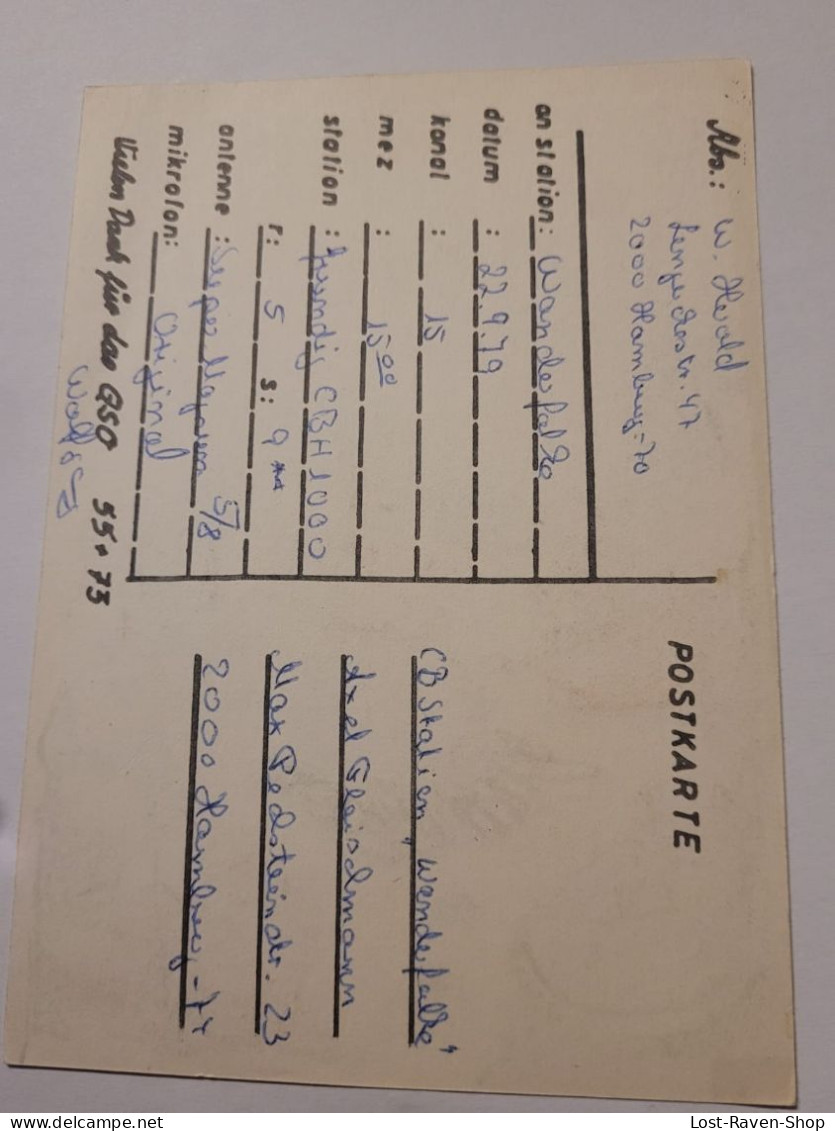 Abs.: W. Herold
Lengerckestr. 47
2000 Hamburg-70
an station: Wanderfalke
datum : 22.9.79
kanal : 15
mez : 15 00
station : Grundig CBH 1000
r: 5 s: 9
antenne : Super Magnum 5/8
mikrofon: Original
Vielen Dank für das QSO 55+73
Wolfgang
POSTKARTE
CB Station "Wanderfalke"
Axel Fleischmann
Max Pechsteinstr. 23
2000 Hamburg-74
Lost-Raven-Shop